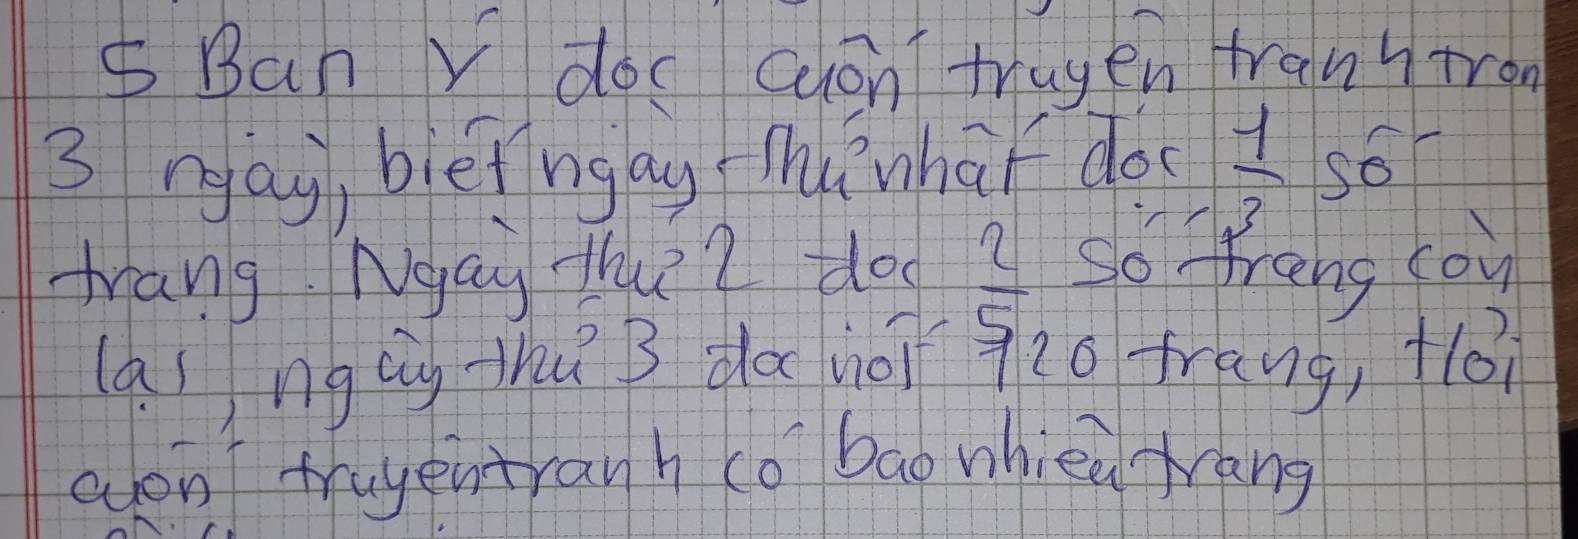 5 Bạn Ý đọc cuốn truyện tranh tron
3 ngày, biết ngày thứ nhất đọc 1/3 số
trang. Ngày thứ 2 đọc 2/5 số trang còn
lại, ngày thứ 3 đọc nốt 120 trang, Hỏi
cuốn truyện tranh có bao nhiêu trang